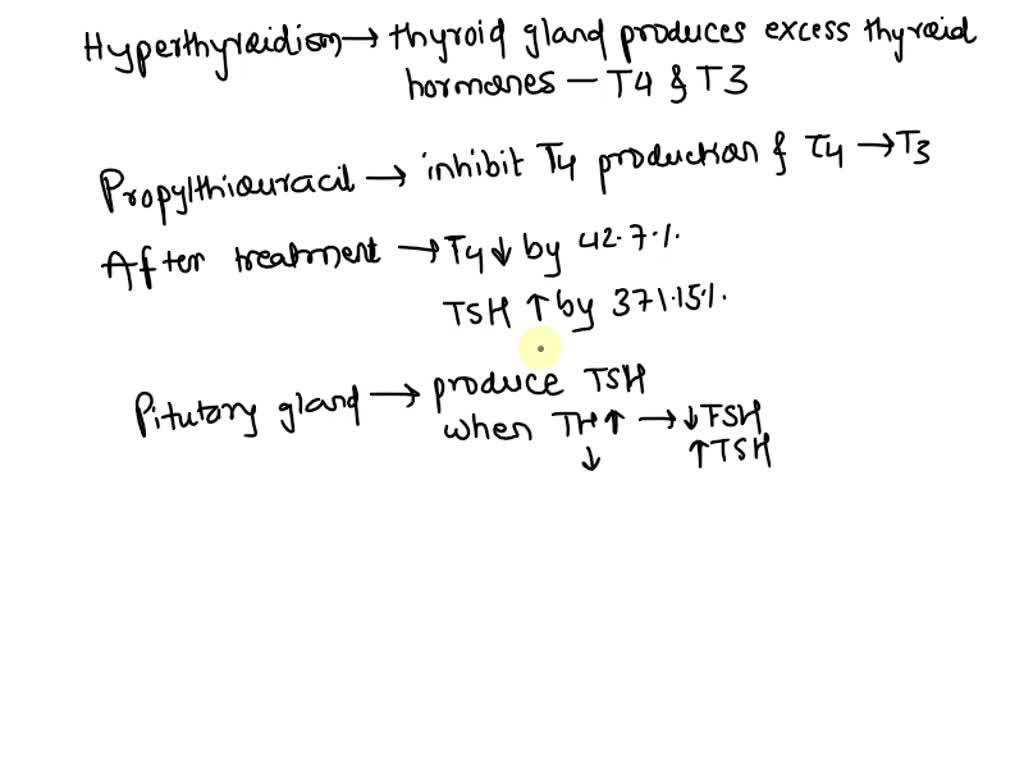 Hyperthyroidism → thyroid gland produces excess thyroid
hormones — T4 & T3
Propylthiouracil → inhibit T4 production & T4 → T3
After treatment → T4 ↓ by 42.7%.
TSH ↑ by 371.15%.
Pitutory gland → produce TSH
when TH ↑ → ↓ FSH
↓ ↑ TSH